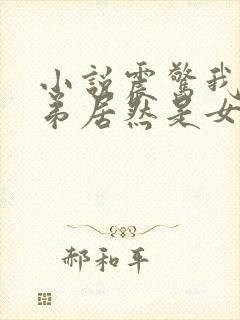 小说震惊我
弟居然是女
郝和平